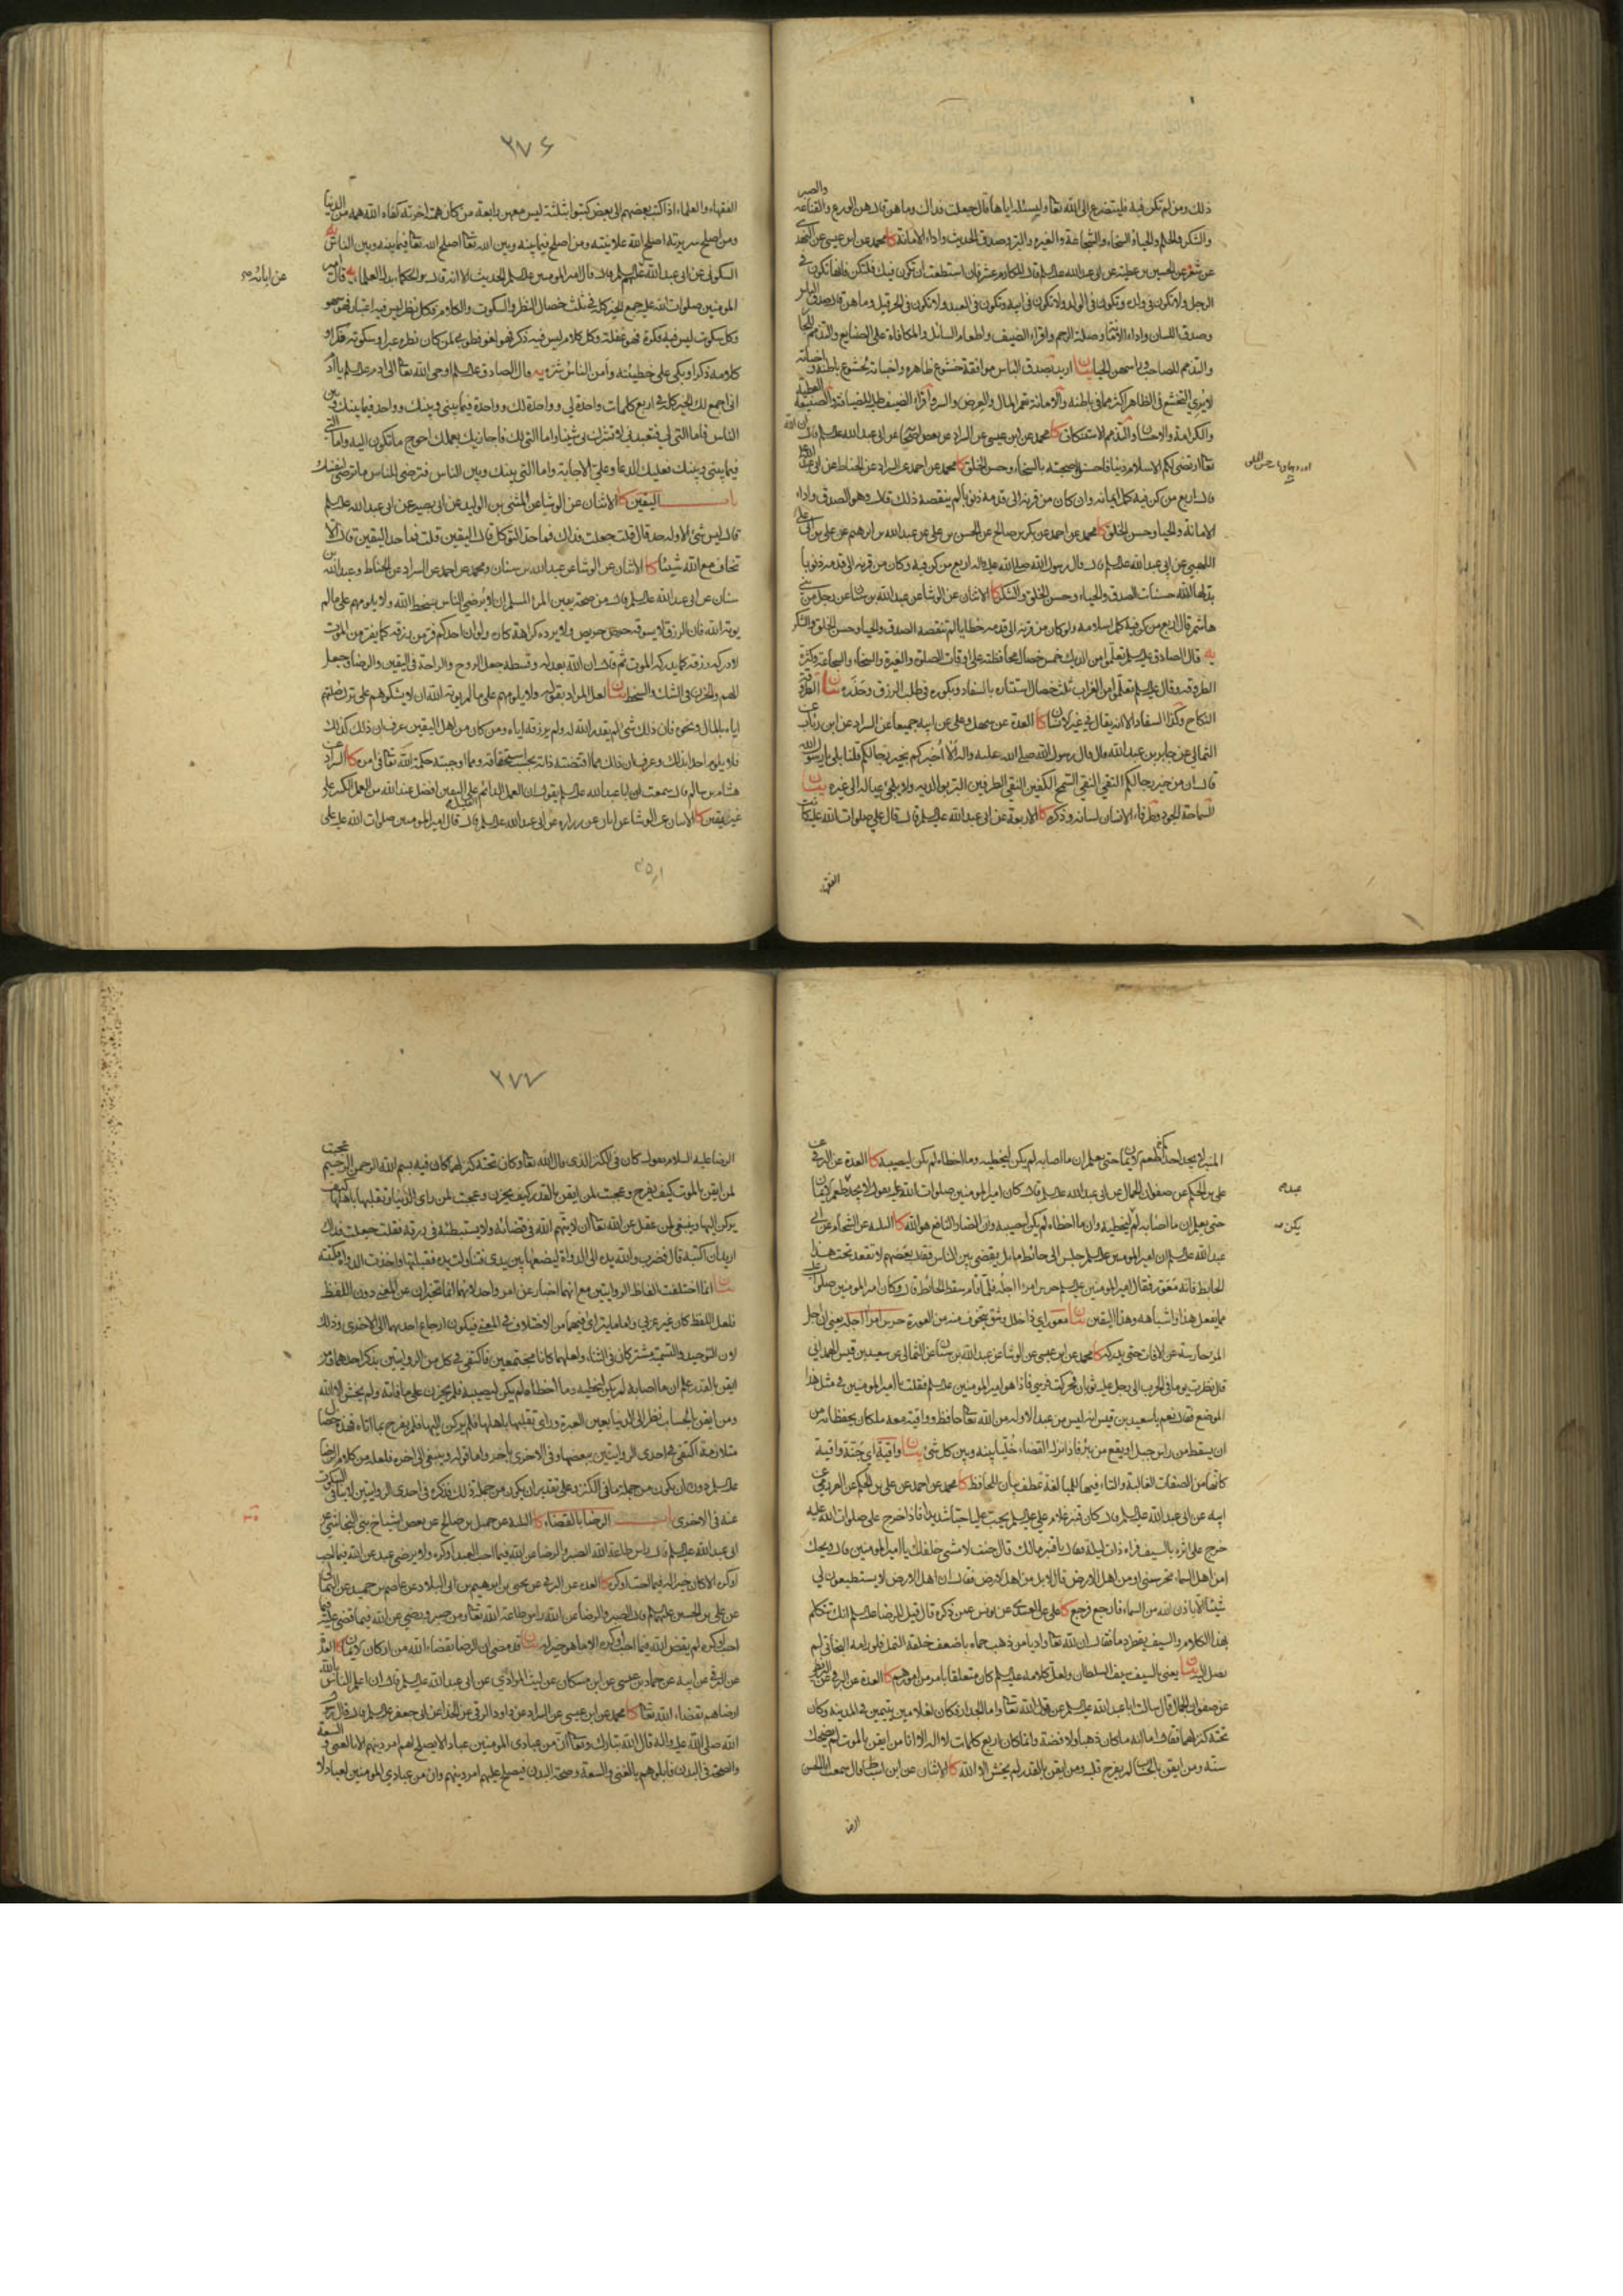 ذلك ومن لم تكن فيه فليتضرع الى الله تعا وليسئله اياها قال جعلت فداك وما هن قال هن الورع والقناعة والصبر
والشكر والحلم والحياء والسخاء والشجاعة والغيرة والبر وصدق الحديث واداء الامانة كا محمد عن ابن عيسى عن
الرجل ولا تكون في ولده وتكون في الولد ولا تكون في ابيه وتكون في العبد ولا تكون في الحر قيل وما هن قال صدق الباس
وصدق اللسان واداء الامانة وصلة الرحم واقراء الضيف واطعام السائل والمكافاة على الصنايع والتذمم للجار
والتذمم للصاحب وراسهن الحياء بيان اريد بصدق الباس موافقة خشوع ظاهره واخباته لخشوع باطنه واخباته
تعا ارتضى لكم الاسلام دينا فاحسنوا صحبته بالسخاء وحسن الخلق كا محمد عن احمد عن السراد عن
قال اربع من كن فيه كمل ايمانه وان كان من قرنه الى قدمه ذنوبا لم ينقصه ذلك قال وهو الصدق واداء
الامانة والحياء وحسن الخلق كا محمد عن احمد عن بكر بن صالح عن الحسن بن علي عن عبدالله بن ابرهيم عن علي بن ابي علي
اللهبي عن ابي عبد الله عليه السلم قال قال رسول الله صلى الله عليه واله اربع من كن فيه وكان من قرنه الى قدمه ذنوبا
بدلها الله حسنات الصدق والحياء وحسن الخلق والشكر كا الاثنان عن الوشا عن عبد الله بن سنان عن رجل من بني
هاشم قال اربع من كن فيه كمل اسلامه ولو كان من قرنه الى قدمه خطايا لم تنقصه الصدق والحياء وحسن الخلق والشكر
يه قال الصادق عليه السلم تعلموا من الديك خمس خصال محافظته على اوقات الصلوة والغيرة والسخاء والشجاعة وكثرة
الطروقة وقال عليه السلم تعلموا من الغراب ثلث خصال استتاره بالسفاد وبكوره في طلب الرزق وحذره بيان
الثمالي عن جابر بن عبد الله قال قال رسول الله صلى الله عليه واله الا اخبركم بخير رجالكم قلنا بلى يا رسول الله
قال ان من خير رجالكم التقي النقي السمح الكفين النقي الطرفين البر بوالديه ولا يلجئ عياله الى غيره بيان
الفقهاء
٢٧٦
الفقهاء والعلماء اذا كتب بعضهم الى بعض كتبوا بثلثة ليس معهن رابعة من كان همته اخرته كفاه الله همه من الدنيا
ومن اصلح سريرته اصلح الله علانيته ومن اصلح فيما بينه وبين الله تعا اصلح الله تعا فيما بينه وبين الناس يه
عن ابائه
المؤمنين صلوات الله عليه جمع الخير كله في ثلث خصال النظر والسكوت والكلام فكل نظر ليس فيه اعتبار فهو سهو
وكل سكوت ليس فيه فكرة فهو غفلة وكل كلام ليس فيه ذكر فهو لغو فطوبى لمن كان نظره عبرا وسكوته فكرا و
كلامه ذكرا وبكى على خطيئته وامن الناس شره يه قال الصادق عليه السلم اوحى الله تعا الى ادم عليه السلم يا ادم
اني اجمع لك الخير كله في اربع كلمات واحدة لي وواحدة لك وواحدة فيما بيني وبينك وواحدة فيما بينك وبين
الناس فاما التي لي فتعبدني لا تشرك بي شيئا واما التي لك فاجازيك بعملك احوج ما تكون اليه واما التي
فيما بيني وبينك فعليك الدعاء وعلي الاجابة واما التي بينك وبين الناس فترضى للناس ما ترضى لنفسك
باب اليقين كا الاثنان عن الوشا عن المثنى بن الوليد عن ابي بصير عن ابي عبد الله عليه السلم
قال ليس شئ الا وله حد قال قلت جعلت فداك فما حد التوكل قال اليقين قلت فما حد اليقين قال الا
تخاف مع الله شيئا كا الاثنان عن الوشا عن عبد الله بن سنان ومحمد عن احمد عن السراد عن الحناط وعبد الله بن
سنان عن ابي عبد الله عليه السلم قال من صحة يقين المرء المسلم ان لا يرضي الناس بسخط الله ولا يلومهم على ما لم
يوته الله فان الرزق لا يسوقه حرص حريص ولا يرده كراهة كاره ولو ان احدكم فر من رزقه كما يفر من الموت
لادركه رزقه كما يدركه الموت ثم قال ان الله بعدله وقسطه جعل الروح والراحة في اليقين والرضا وجعل
الهم والحزن في الشك والسخط بيان لعل المراد بقوله ولا يلومهم على ما لم يوته الله ان لا يشكوهم على ترك صلتهم
اياه بالمال ونحوه فان ذلك شئ لم يقدره الله له ولم يرزقه اياه ومن كان من اهل اليقين عرف ان ذلك كذلك
هشام بن سالم قال سمعت ابا عبد الله عليه السلم يقول ان العمل الدائم القليل على اليقين افضل عند الله من العمل الكثير على
غير يقين كا الاثنان عن الوشا عن ابان عن زرارة عن ابي عبد الله عليه السلم قال قال امير المؤمنين صلوات الله عليه على
المنبر لا يجد احدكم طعم الايمان حتى يعلم ان ما اصابه لم يكن ليخطيه وما اخطاه لم يكن ليصيبه كا العدة عن البرقي عن
علي بن الحكم عن صفوان الجمال عن ابي عبد الله عليه السلم قال كان امير المؤمنين صلوات الله عليه يقول لا يجد عبد طعم الايمان
حتى يعلم ان ما اصابه لم يكن ليخطيه وان ما اخطاه لم يكن ليصيبه وان الضار النافع هو الله كا الثلثة عن الشحام عن ابي
عبد الله عليه السلم ان امير المؤمنين عليه السلم جلس الى حائط مايل يقضي بين الناس فقال بعضهم لا تقعد تحت هذا
الحائط فانه معور فقال امير المؤمنين عليه السلم حرس امرءا اجله فلما قام سقط الحائط قال وكان امير المؤمنين صلوات الله عليه
مما يفعل هذا واشباهه وهذا اليقين بيان
المرء حارسه عن الافات حتى يدركه كا محمد عن ابن عيسى عن الوشا عن عبد الله بن سنان عن الثمالي عن سعيد بن قيس الهمداني
قال نظرت يوما في الحرب الى رجل عليه ثوبان فحركت فرسي فاذا هو امير المؤمنين عليه السلم فقلت يا امير المؤمنين في مثل هذا
الموضع فقال نعم يا سعيد بن قيس انه ليس من عبد الا وله من الله تعا حافظ وواقية معه ملكان يحفظانه من
ان يسقط من راس جبل او يقع من بئر فاذا نزل القضاء خليا بينه وبين كل شئ بيان واقية اي جنة واقية
ابيه عن ابي عبد الله عليه السلم قال كان قنبر غلام علي عليه السلم يحب عليا حبا شديدا فاذا خرج علي صلوات الله عليه
خرج على اثره بالسيف فراه ذات ليلة فقال يا قنبر مالك قال جئت لامشي خلفك يا امير المؤمنين قال ويحك
امن اهل السماء تحرسني او من اهل الارض قال لا بل من اهل الارض فقال ان اهل الارض لا يستطيعون لي
شيئا الا باذن الله من السماء فارجع فرجع كا علي عن العبيدي عن يونس عمن ذكره قال قيل للرضا عليه السلم انك تتكلم
بهذا الكلام والسيف يقطر دما فقال ان لله تعا واديا من ذهب حماه باضعف خلقه النمل فلو رامه البخاتي لم
تصل اليه بيان
عن صفوان الجمال قال سالت ابا عبد الله عليه السلم عن قول الله تعا واما الجدار فكان لغلامين يتيمين في المدينة وكان
تحته كنز لهما فقال اما انه ما كان ذهبا ولا فضة وانما كان اربع كلمات لا اله الا انا من ايقن بالموت لم يضحك
سنه ومن ايقن بالحساب لم يفرح قلبه ومن ايقن بالقدر لم يخش الا الله كا الاثنان عن ابن اسباط قال سمعت ابا الحسن
الرضا
٢٧٧
الرضا عليه السلام يقول كان في الكنز الذي قال الله تعا وكان تحته كنز لهما كان فيه بسم الله الرحمن الرحيم عجبت
لمن ايقن بالموت كيف يفرح وعجبت لمن ايقن بالقدر كيف يحزن وعجبت لمن راى الدنيا وتقلبها باهلها كيف
يركن اليها وينبغي لمن عقل عن الله تعا ان لا يتهم الله في قضائه ولا يستبطئه في رزقه فقلت جعلت فداك
اريد ان اكتبه قال فضرب والله يده الى الدواة ليضعها بين يدي فتناولت يده فقبلتها واخذت الدواة فكتبته
بيان انما اختلفت الفاظ الروايتين مع انهما اخبار عن امر واحد لانهما انما تخبران عن المعنى دون اللفظ
فلعل اللفظ كان غير عربي واما ما يتراى فيهما من الاختلاف في المعنى فيمكن ارجاع احديهما الى الاخرى وذلك
لان التوحيد والتسمية مشتركان في الثناء ولعلهما كانا مجتمعين فاكتفى في كل من الروايتين بذكر احدهما ومن
ايقن بالقدر علم ان ما اصابه لم يكن ليخطيه وما اخطاه لم يكن ليصيبه فلم يحزن على ما فاته ولم يخش الا الله
ومن ايقن بالحساب نظر الى الدنيا بعين العبرة وراى تقلبها باهلها فلم يركن اليها فلم يفرح بما اتاه فهذه خصال
متلازمة اكتفى في احدى الروايتين ببعضها وفي الاخرى باخر واما قوله وينبغي الى اخره فلعله من كلام الرضا
عليه السلم دون ان يكون من جملة ما في الكنز وعلى تقدير ان يكون من جملة ذلك فذكره في احدى الروايتين لا ينافي السكوت
عنه في الاخرى باب الرضا بالقضاء كا الثلثة عن جميل بن صالح عن بعض اشياخ بني النجاشي عن
ابي عبد الله عليه السلم قال راس طاعة الله الصبر والرضا عن الله فيما احب العبد او كره ولا يرضى عبد عن الله فيما احب
او كره الا كان خيرا له فيما احب او كره كا العدة عن البرقي عن يحيى بن ابرهيم بن ابي البلاد عن عاصم بن حميد عن الثمالي
عن علي بن الحسين عليهما السلم قال الصبر والرضا عن الله راس طاعة الله تعا ومن صبر ورضي عن الله فيما قضى عليه فيما
احب او كره لم يقض الله فيما احب او كره الا ما هو خير له بيان قد مضى ان الرضا بقضاء الله من اركان الايمان كا العدة
عن البرقي عن ابيه عن حماد بن عيسى عن ابن مسكان عن ليث المرادي عن ابي عبد الله عليه السلم قال ان اعلم الناس بالله
ارضاهم بقضاء الله تعا كا محمد عن ابن عيسى عن السراد عن داود الرقي عن الحذاء عن ابي جعفر عليه السلم قال قال رسول
الله صلى الله عليه واله قال الله تبارك وتعا ان من عبادي المؤمنين عبادا لا يصلح لهم امر دينهم الا بالغنى والسعة
والصحة في البدن فابلوهم بالغنى والسعة وصحة البدن فيصلح عليهم امر دينهم وان من عبادي المؤمنين لعبادا لا